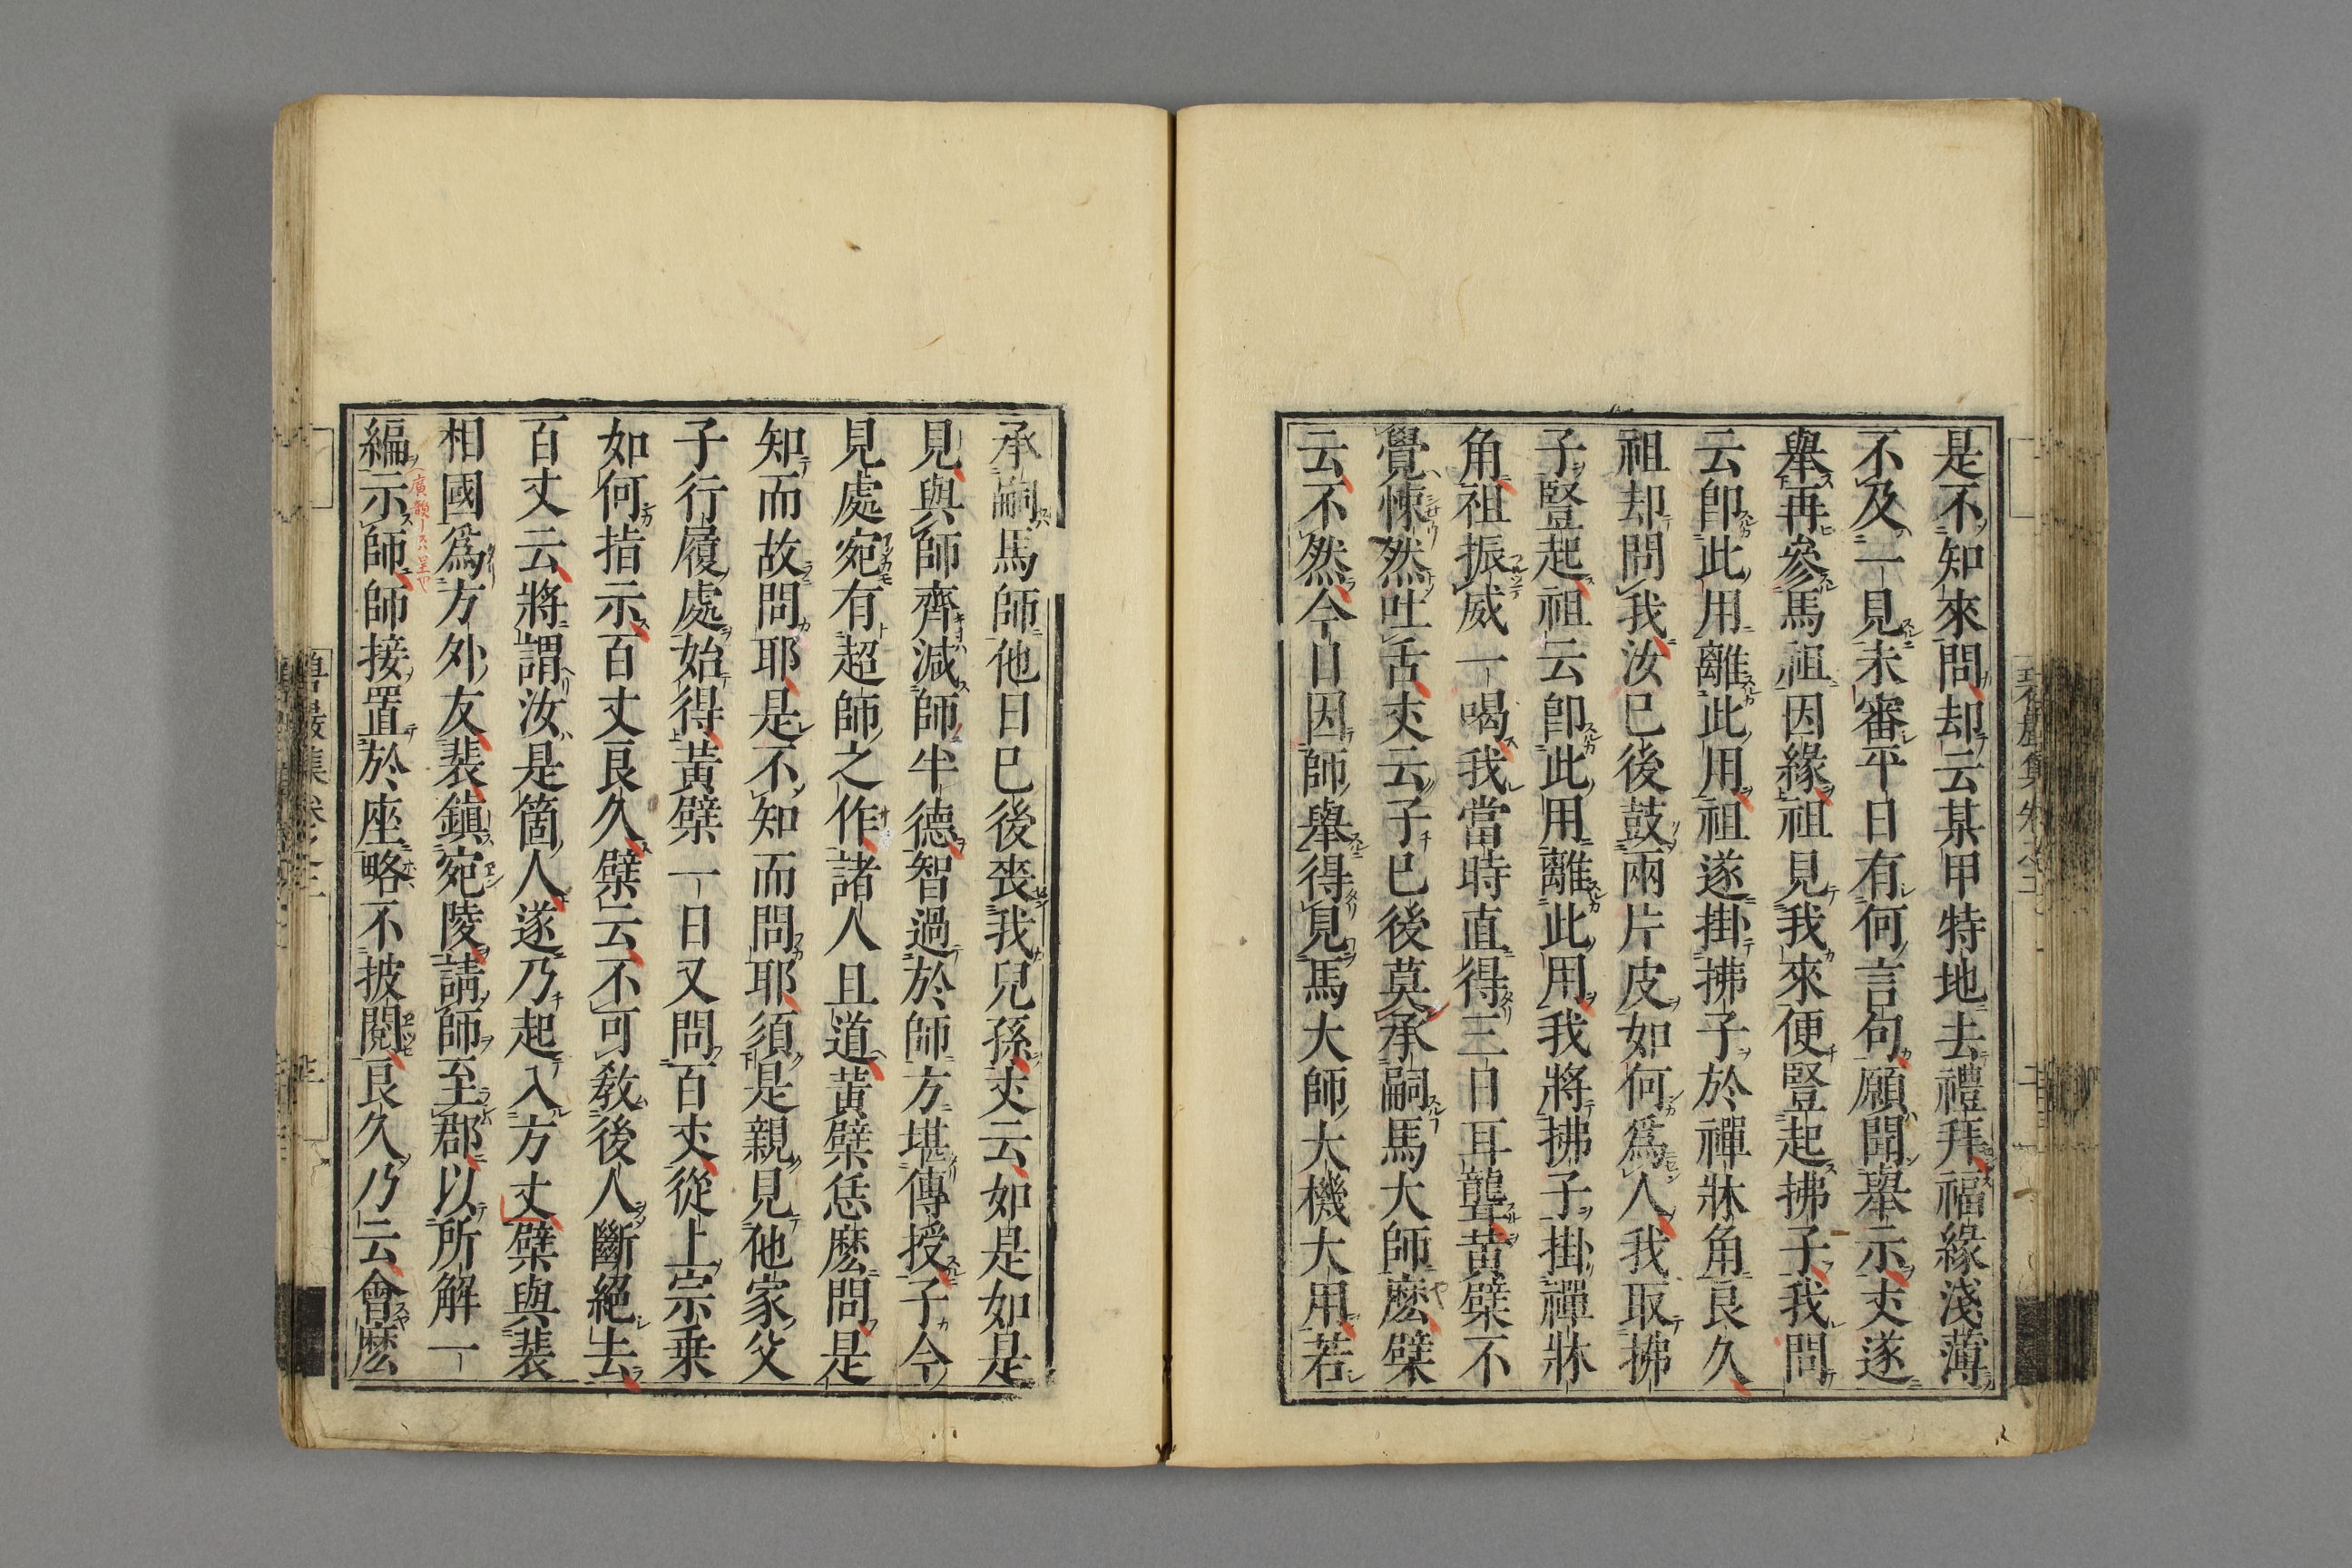 是不知來問却云某甲特地去禮拜福緣淺薄
不及一見未審平日有何言句願聞舉示丈遂
舉再參馬祖因緣祖見我來便豎起拂子我問
云即此用離此用祖遂掛拂子於禪牀角良久
祖却問我汝已後鼓兩片皮如何爲人我取拂
子豎起祖云即此用離此用我將拂子掛禪牀
角祖振威一喝我當時直得三日耳聾黃檗不
覺悚然吐舌丈云子已後莫承嗣馬大師麽檗
云不然今日因師舉得見馬大師大機大用若
承嗣馬師他日已後喪我兒孫丈云如是如是
見與師齊減師半德智過於師方堪傳授子今
見處宛有超師之作諸人且道黃檗恁麽問是
知而故問耶是不知而問耶須是親見他家父
子行履處始得黃檗一日又問百丈從上宗乘
如何指示百丈良久檗云不可教後人斷絕去
百丈云將謂汝是箇人遂乃起入方丈檗與裴
相國爲方外友裴鎭宛陵請師至郡以所解一
編示師師接置於座略不披閱良久乃云會麽